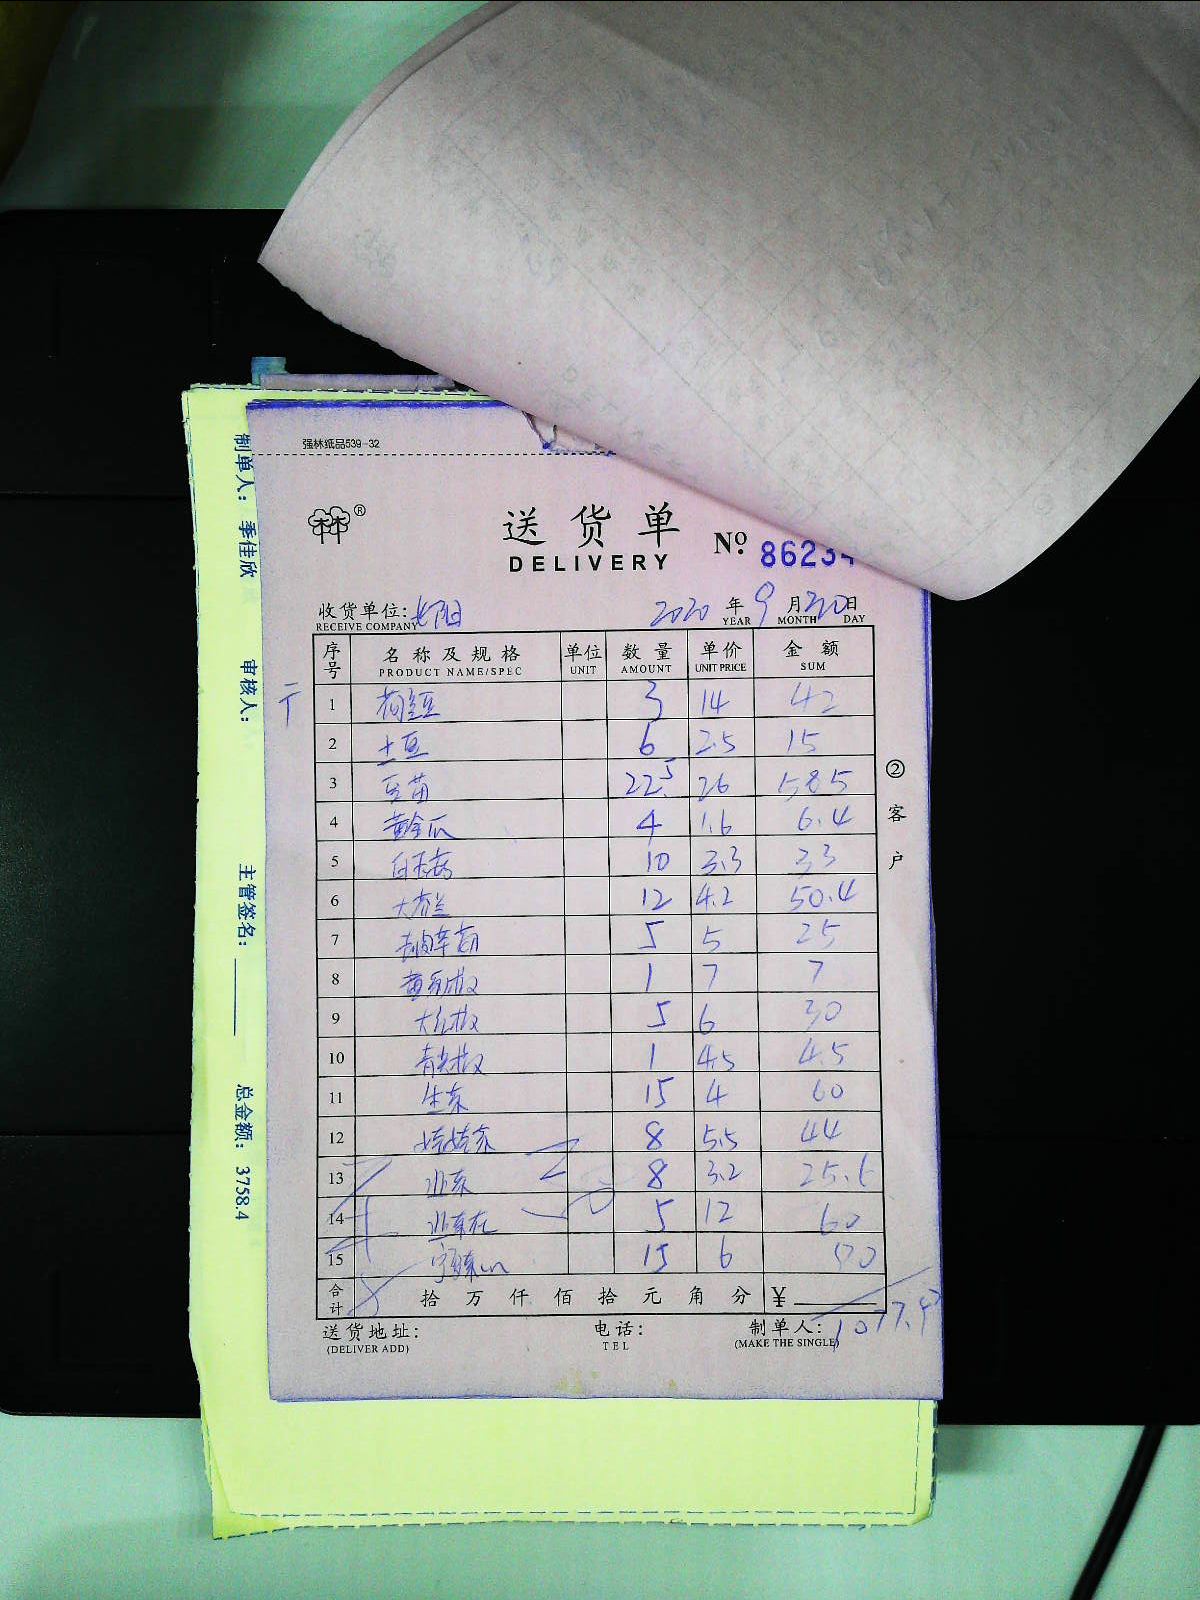 强林纸品539-32
林®
送货单
DELIVERY
No. 86234
收货单位:
RECEIVE COMPANY
2020 年 9 月 20 日
YEAR MONTH DAY
序号 名称及规格 单位 数量 单价 金额
PRODUCT NAME/SPEC UNIT AMOUNT UNIT PRICE SUM
1 荷兰豆 3 14 42
2 土豆 6 2.5 15
3 豆苗 22.5 26 585
4 黄金瓜 4 1.6 6.4
5 白玉菇 10 3.3 33
6 12 4.2 50.4
7 5 5 25
8 黄彩椒 1 7 7
9 大红椒 5 6 30
10 青尖椒 1 4.5 4.5
11 生菜 15 4 60
12 娃娃菜 8 5.5 44
13 8 3.2 25.6
14 5 12 60
15 15 6 90
合计 拾 万 仟 佰 拾 元 角 分 ¥
1077.9
送货地址: 电话: 制单人:
(DELIVER ADD) TEL (MAKE THE SINGLE)
② 客户
制单人: 季佳欣 审核人: 主管签名: 总金额: 3758.4